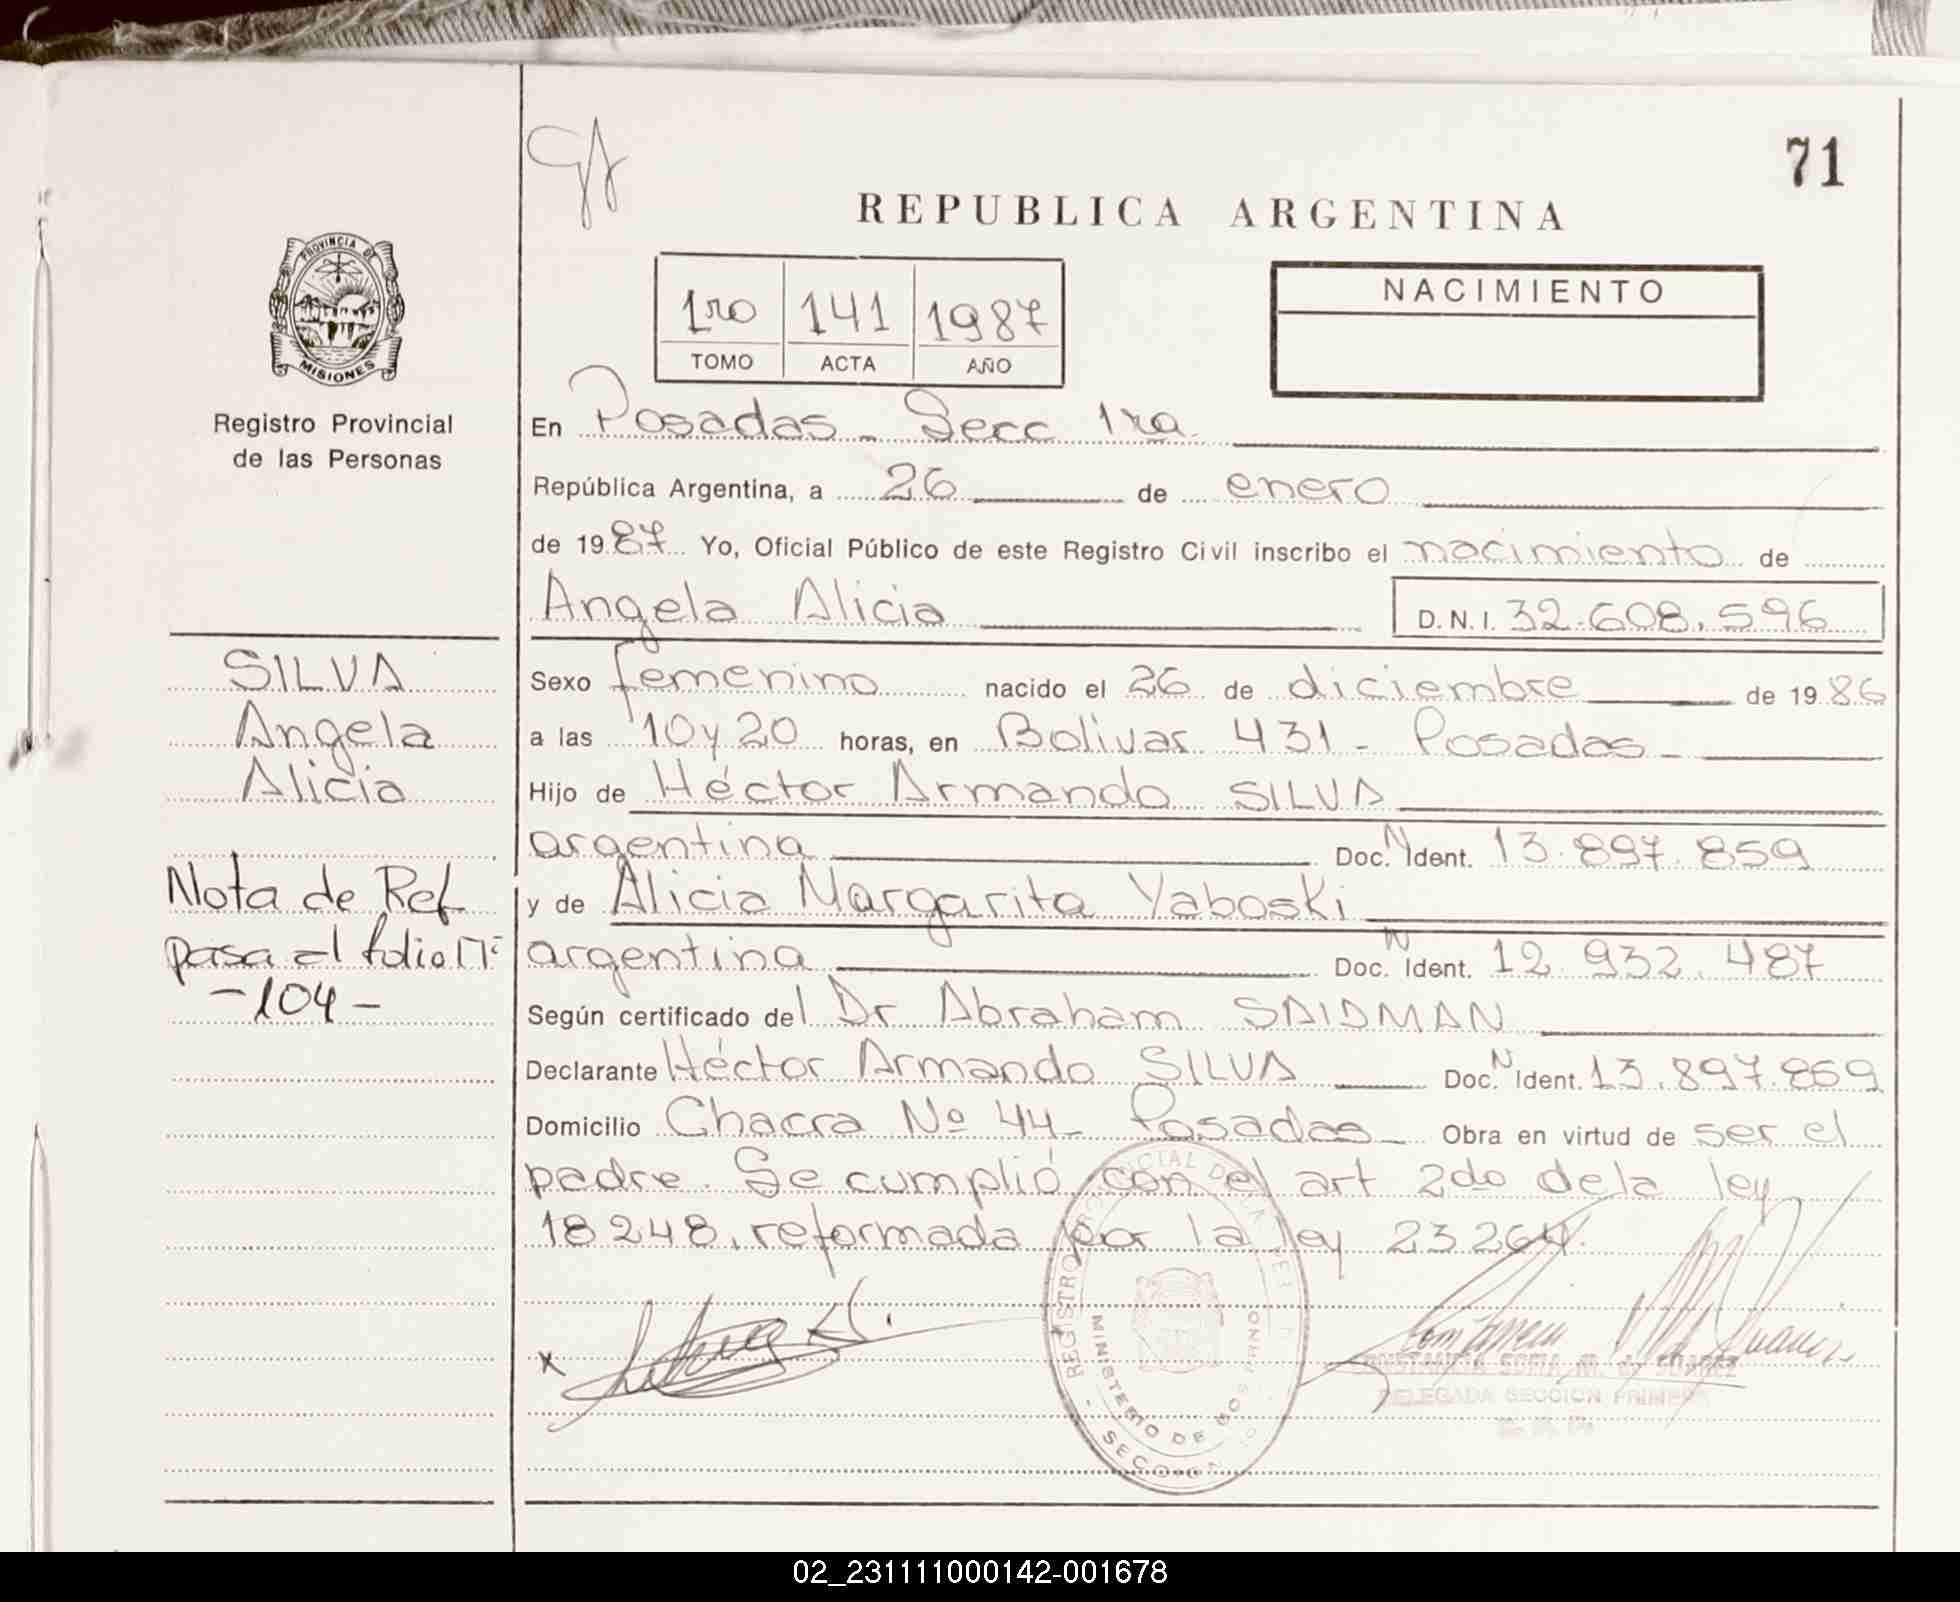 71
REPUBLICA ARGENTINA
PROVINCIA DE
MISIONES
Registro Provincial
de las Personas
1ro 141 1987
TOMO ACTA AÑO
NACIMIENTO
En Posadas - Secc 1ra.
República Argentina, a 26 de enero
de 1987 Yo, Oficial Público de este Registro Civil inscribo el nacimiento de
Angela Alicia D.N.I. 32.608.596
SILVA
Angela
Alicia
Nota de Ref
pasa al folio Nº
-104-
Sexo femenino nacido el 26 de diciembre de 1986
a las 10 y 20 horas, en Bolivar 431 - Posadas -
Hijo de Héctor Armando SILVA
argentina Doc. N Ident. 13.897.859
y de Alicia Margarita Yaboski
argentina Doc. N Ident. 12.932.487
Según certificado del Dr Abraham SAIDMAN
Declarante Héctor Armando SILVA Doc. N Ident. 13.897.859
Domicilio Chacra Nº 44 - Posadas - Obra en virtud de ser el
padre. Se cumplió con el art 2do de la ley
18248, reformada por la ley 23264.
x
REGISTRO
MINISTERIO DE GOBIERNO
SECCION
CONSTANCIA SOFIA M. de SUAREZ
DELEGADA SECCION PRIMERA
02_231111000142-001678